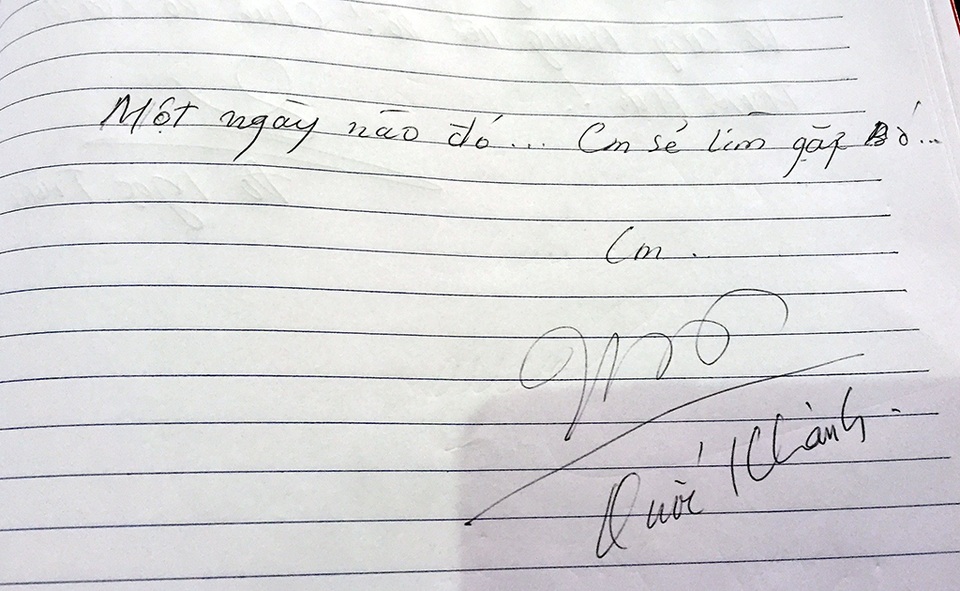 Một ngày nào đó... Con sẽ tìm gặp Bố...
Con.
Quốc Khánh.